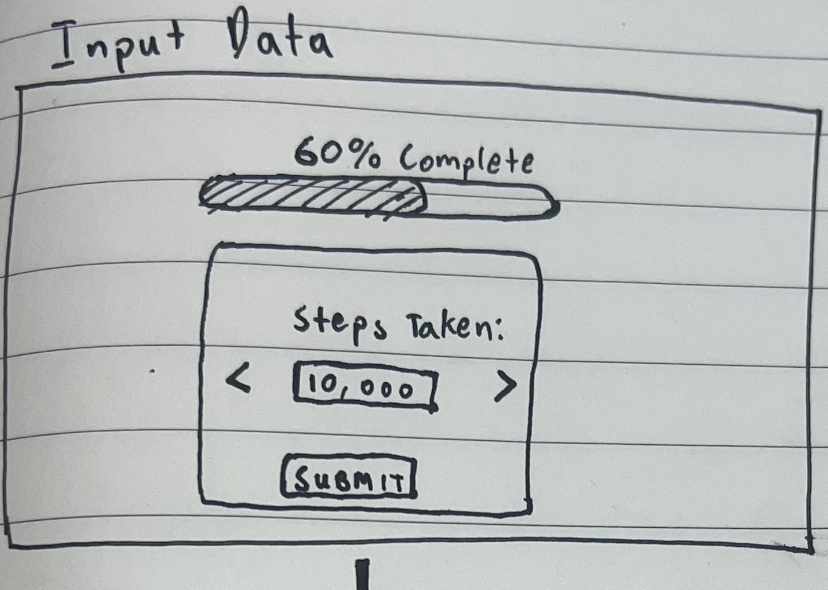 Input Data
60% Complete
Steps Taken:
< 10,000 >
SUBMIT